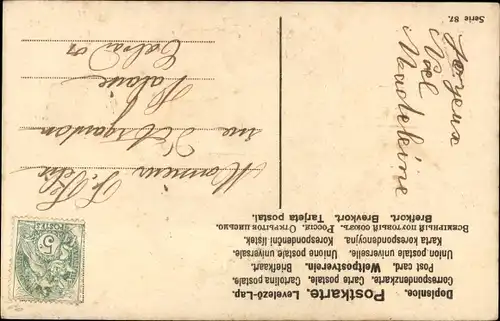 Dopisnice. Postkarte. Levelező-Lap.
Correspondenzkarte. Carte postale. Cartolina postale.
Post card. Weltpostverein. Briefkaart.
Union postale universelle. Unione postale universale.
Karta korespondencyjna. Korespondenční lístek.
Всемірный почтовый союзъ. Россія. Открытое письмо.
Brefkort. Brevkort. Tarjeta postal.
Serie 87.
Joyeux
Noël
Madeleine
Monsieur
Calvados
POSTES
5